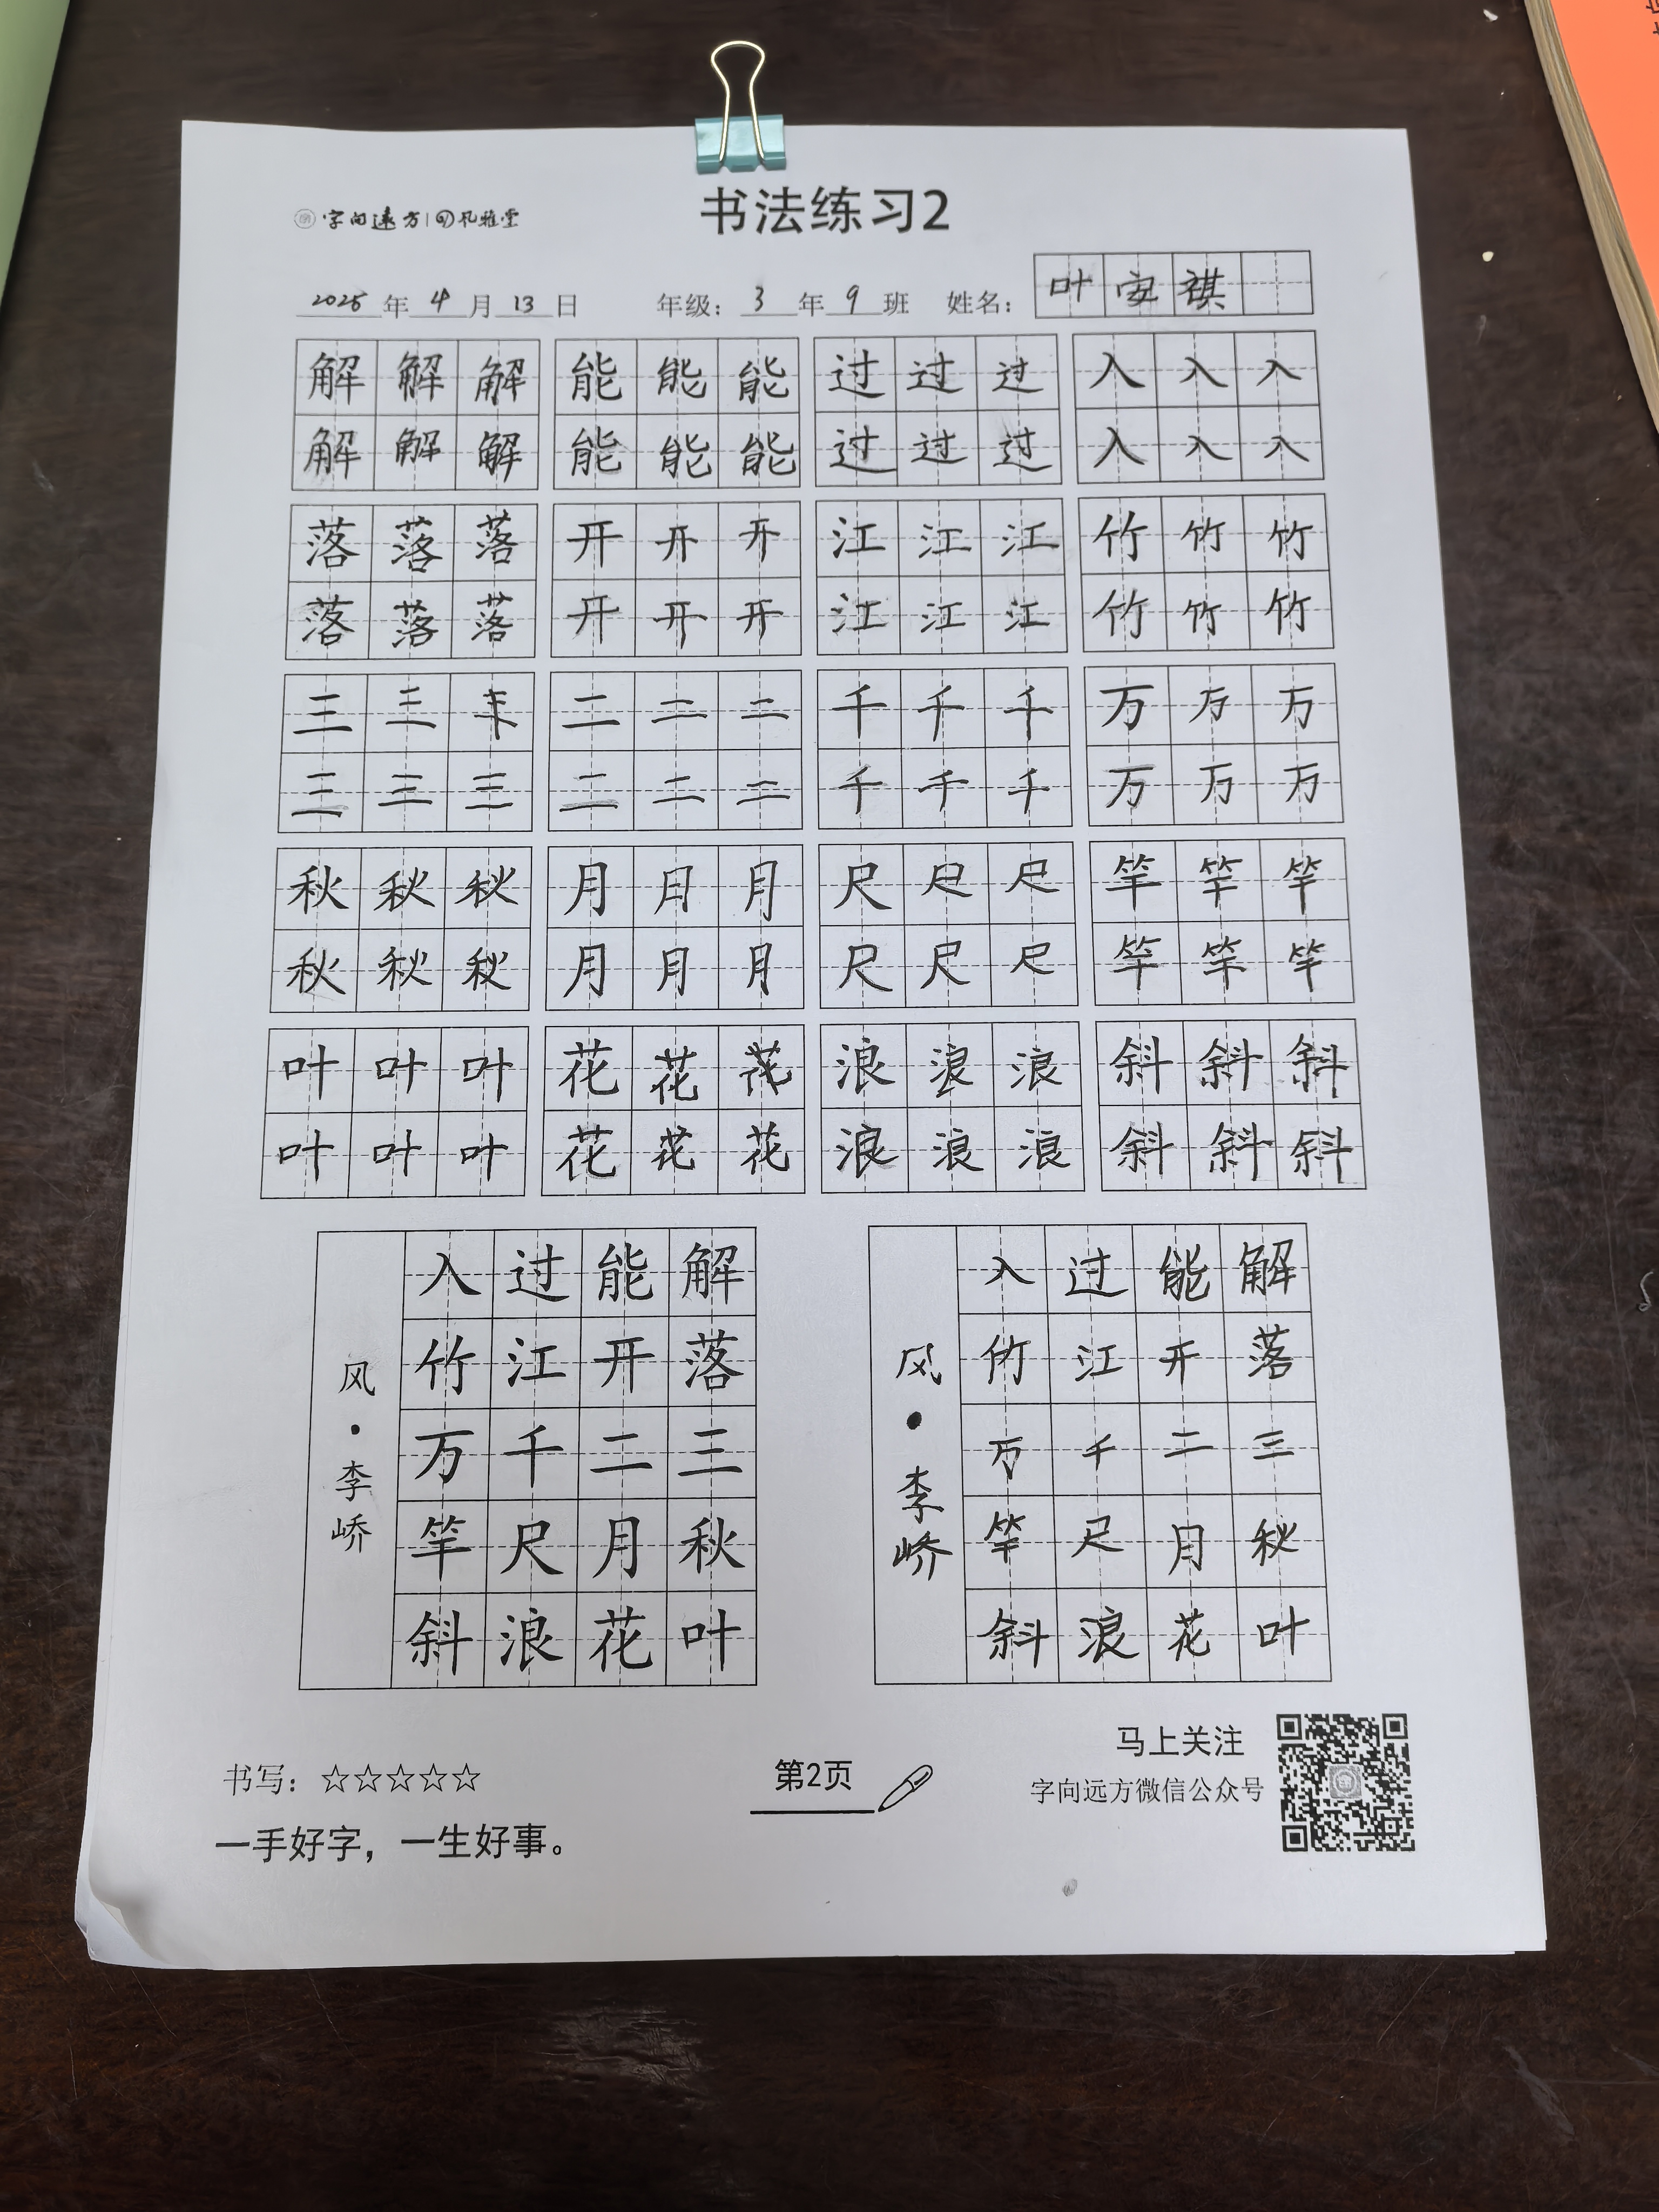 字向远方|孔雅堂
书法练习2
2025年4月13日 年级：3年9班 姓名：叶家祺
解解解 能能能 过过过 入入入
解解解 能能能 过过过 入入入
落落落 开开开 江江江 竹竹竹
落落落 开开开 江江江 竹竹竹
三三 二二二 千千千 万万万
三三三 二二二 千千千 万万万
秋秋秋 月月月 尺尺尺 竿竿竿
秋秋秋 月月月 尺尺尺 竿竿竿
叶叶叶 花花花 浪浪浪 斜斜斜
叶叶叶 花花花 浪浪浪 斜斜斜
解落三秋叶
能开二月花
过江千尺浪
入竹万竿斜
风·李峤
解落三秋叶
能开二月花
过江千尺浪
入竹万竿斜
风·李峤
书写：☆☆☆☆☆
一手好字，一生好事。
第2页
马上关注
字向远方微信公众号